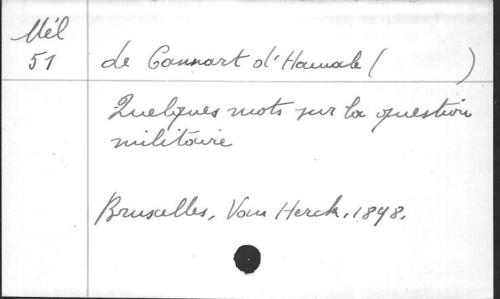 Mél
51
de Cannart d'Hamale ( )
Quelques mots sur la question
militaire
Bruxelles, Van Herck, 1898.